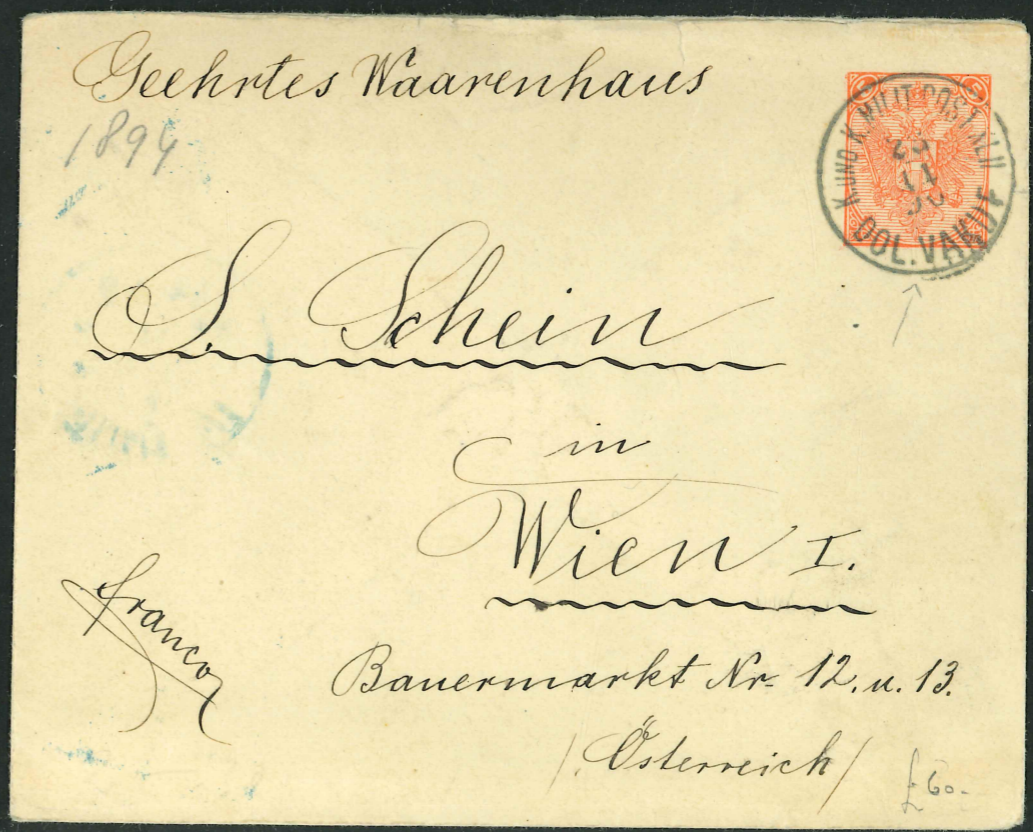 Geehrtes Waarenhaus
1894
K. UND K. MILIT. POST XLII
23
11
90
DOL. VAKUF
S. Schein
in
Wien I.
franco
Bauermarkt Nr. 12. u. 13.
/Österreich/
£60.-